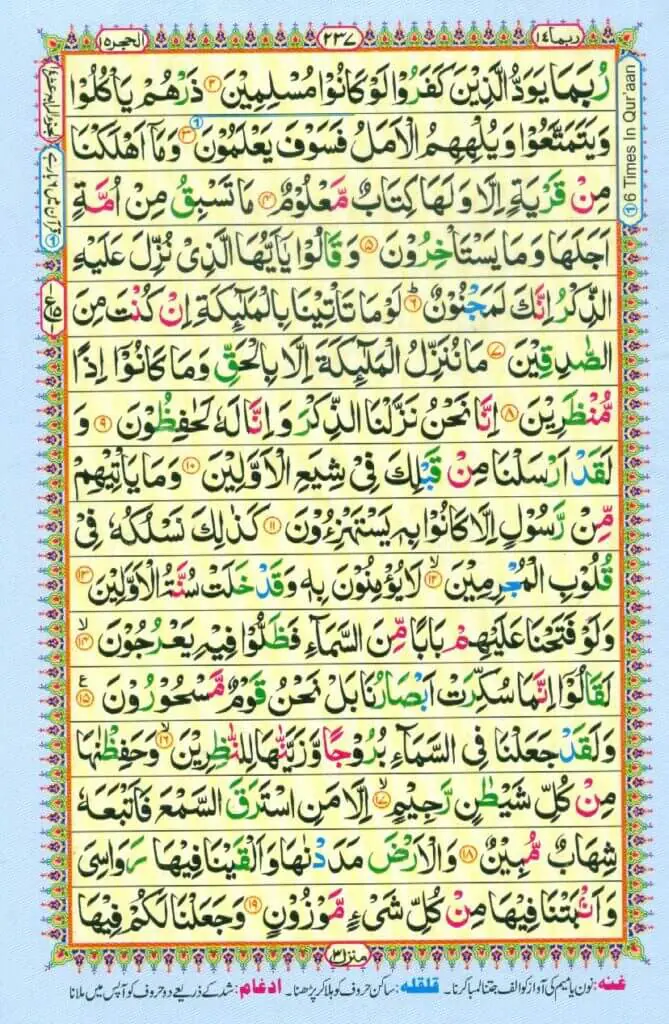 ربما ١٤
٢٣٧
الحجر ١٥
رُبَمَا يَوَدُّ الَّذِيْنَ كَفَرُوْا لَوْ كَانُوْا مُسْلِمِيْنَ ۝٢ ذَرْهُمْ يَاْكُلُوْا
وَيَتَمَتَّعُوْا وَيُلْهِهِمُ الْاَمَلُ فَسَوْفَ يَعْلَمُوْنَ ۝٣ وَمَاۤ اَهْلَكْنَا
مِنْ قَرْيَةٍ اِلَّا وَلَهَا كِتَابٌ مَّعْلُوْمٌ ۝٤ مَا تَسْبِقُ مِنْ اُمَّةٍ
اَجَلَهَا وَمَا يَسْتَاْخِرُوْنَ ۝٥ وَقَالُوْا يٰۤاَيُّهَا الَّذِيْ نُزِّلَ عَلَيْهِ
الذِّكْرُ اِنَّكَ لَمَجْنُوْنٌ ۝٦ لَوْ مَا تَاْتِيْنَا بِالْمَلٰٓئِكَةِ اِنْ كُنْتَ مِنَ
الصّٰدِقِيْنَ ۝٧ مَا نُنَزِّلُ الْمَلٰٓئِكَةَ اِلَّا بِالْحَقِّ وَمَا كَانُوْۤا اِذًا
مُّنْظَرِيْنَ ۝٨ اِنَّا نَحْنُ نَزَّلْنَا الذِّكْرَ وَاِنَّا لَهٗ لَحٰفِظُوْنَ ۝٩ وَ
لَقَدْ اَرْسَلْنَا مِنْ قَبْلِكَ فِيْ شِيَعِ الْاَوَّلِيْنَ ۝١٠ وَمَا يَاْتِيْهِمْ
مِّنْ رَّسُوْلٍ اِلَّا كَانُوْا بِهٖ يَسْتَهْزِءُوْنَ ۝١١ كَذٰلِكَ نَسْلُكُهٗ فِيْ
قُلُوْبِ الْمُجْرِمِيْنَ ۝١٢ لَا يُؤْمِنُوْنَ بِهٖ وَقَدْ خَلَتْ سُنَّةُ الْاَوَّلِيْنَ ۝١٣
وَلَوْ فَتَحْنَا عَلَيْهِمْ بَابًا مِّنَ السَّمَآءِ فَظَلُّوْا فِيْهِ يَعْرُجُوْنَ ۝١٤
لَقَالُوْۤا اِنَّمَا سُكِّرَتْ اَبْصَارُنَا بَلْ نَحْنُ قَوْمٌ مَّسْحُوْرُوْنَ ۝١٥
وَلَقَدْ جَعَلْنَا فِي السَّمَآءِ بُرُوْجًا وَّزَيَّنّٰهَا لِلنّٰظِرِيْنَ ۝١٦ وَحَفِظْنٰهَا
مِنْ كُلِّ شَيْطٰنٍ رَّجِيْمٍ ۝١٧ اِلَّا مَنِ اسْتَرَقَ السَّمْعَ فَاَتْبَعَهٗ
شِهَابٌ مُّبِيْنٌ ۝١٨ وَالْاَرْضَ مَدَدْنٰهَا وَاَلْقَيْنَا فِيْهَا رَوَاسِيَ
وَاَنْۢبَتْنَا فِيْهَا مِنْ كُلِّ شَيْءٍ مَّوْزُوْنٍ ۝١٩ وَجَعَلْنَا لَكُمْ فِيْهَا
① 6 Times In Qur'aan
① قرآن میں ٦ بار ہے
منزل ٣
غنه: نون یا میم کی آواز کو الف جتنا لمبا کرنا۔ قلقله: ساکن حروف کو ہلا کر پڑھنا۔ ادغام: شد کے ذریعے دو حروف کو آپس میں ملانا